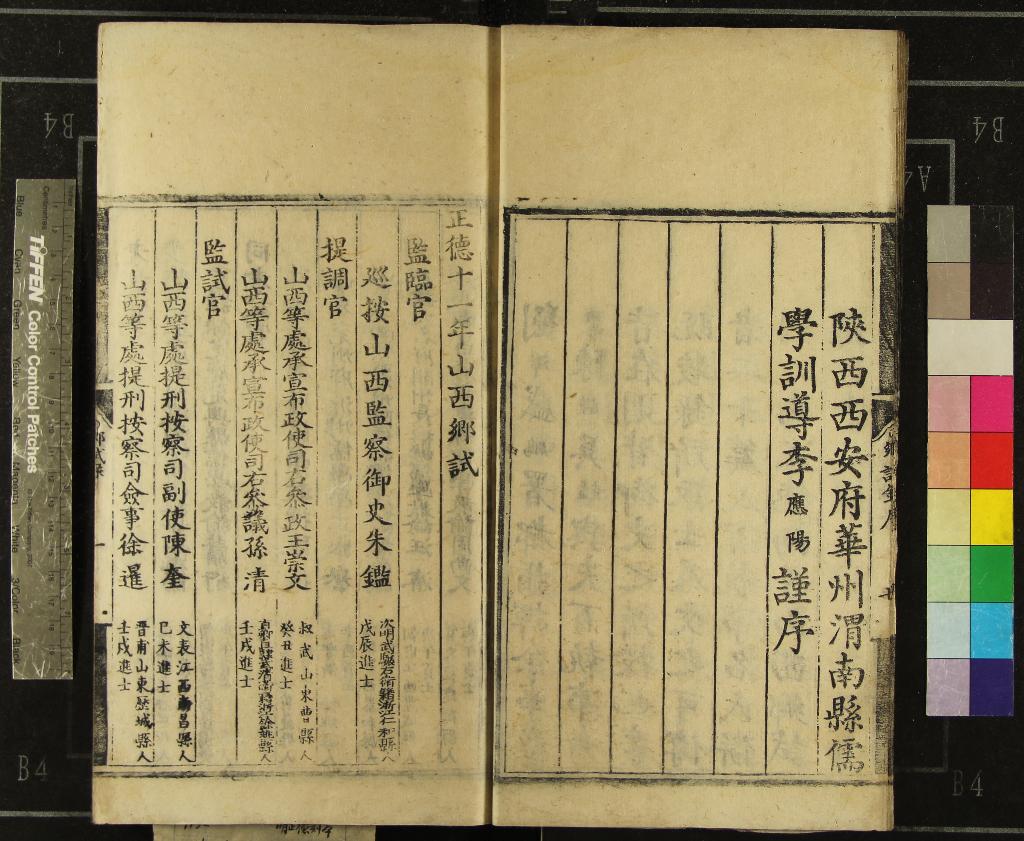 陝西西安府華州渭南縣儒
學訓導李應陽謹序
正德十一年山西鄉試
監臨官
巡按山西監察御史朱鑑
戊辰進士
提調官
山西等處承宣布政使司右叅政王崇文
叔武山東曹縣人
癸丑進士
山西等處承宣布政使司右叅議孫清
壬戌進士
監試官
山西等處提刑按察司副使陳奎
文表江西南昌縣人
己未進士
山西等處提刑按察司僉事徐暹
晋甫山東歷城縣人
壬戌進士
TIFFEN Color Control Patches
Blue
Cyan
Green
Yellow
Red
Magenta
White
3/Color
Black
Centimetres
B4
B4
B4
B4
A4